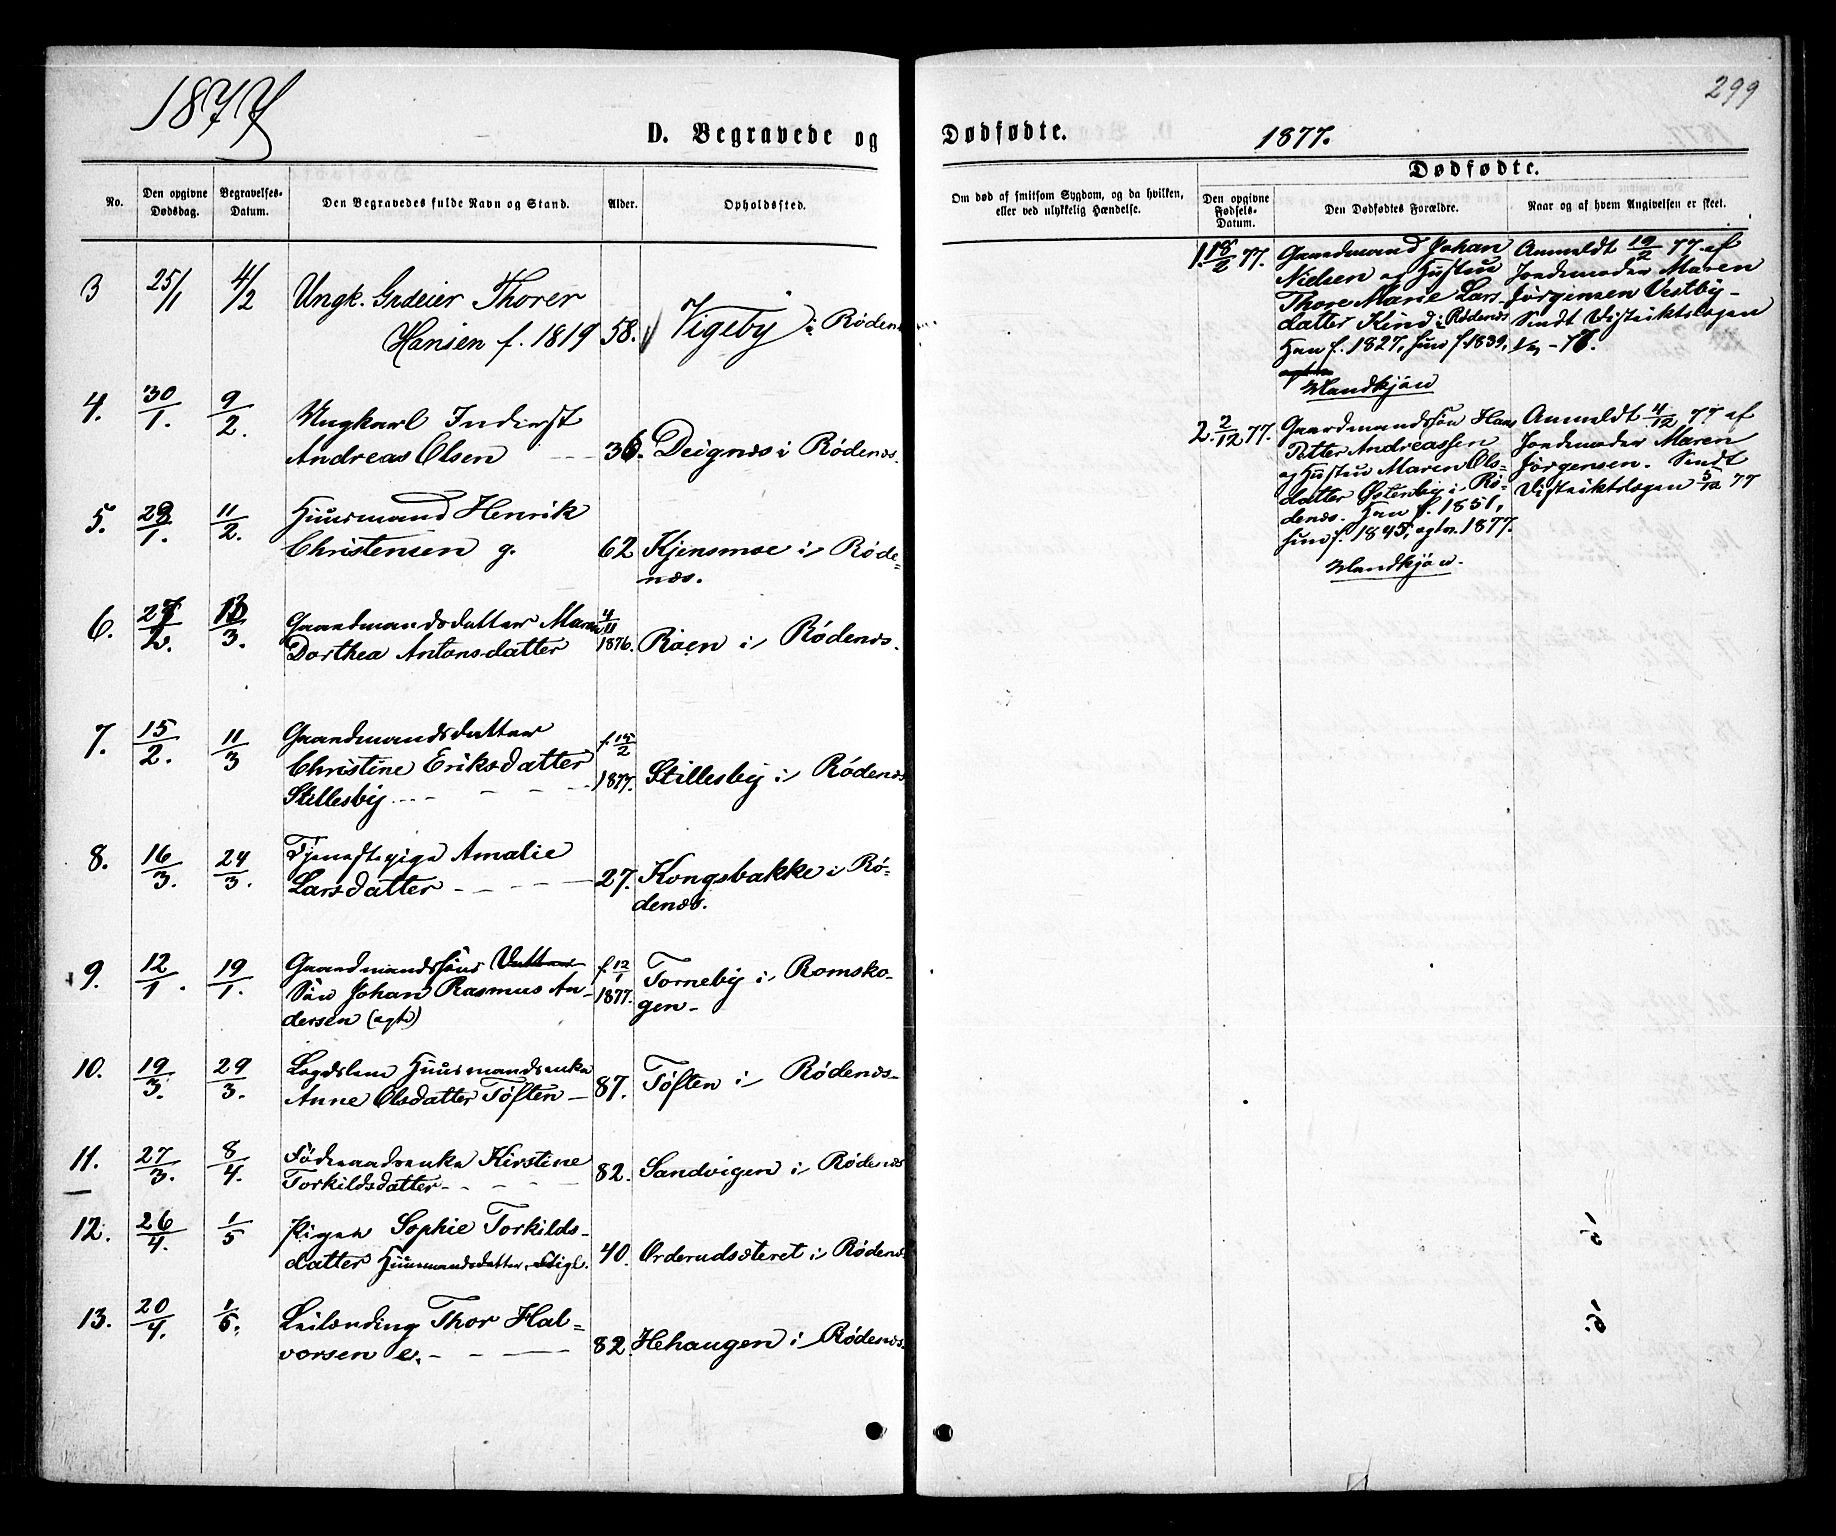 1877
D. Begravede og
No.
Den opgivne Dødsdag.
Begravelses-Datum.
Den Begravedes fulde Navn og Stand.
Alder.
Opholdssted.
3 25/1 4/2 Ungk. Grdeier Thorer
Hansen f. 1819 58. Vigeby i Rødenæs
4. 30/1. 9/2. Ungkarl Inderst
Andreas Olsen 36. Deignæs i Rødenæs.
5. 11/2. Huusmand Henrik
Christensen g. 62 Kjensmoe i Røde=
næs.
6. Gaardmandsdatter Maren 4/11
Dorthea Antonsdatter 1876. Roen i Rødenæs.
7. 15/2. 11/3 Gaardmandsdatter f. 15/2
Christine Eriksdatter 1877. Stillesby i Rødenæs
Stillesby
8. 16/3. 24/3. Tjenestepige Amalie
Larsdatter 27. Kongsbakke i Rø-
denæs.
9. 12/1. 19/1. Gaardmandssöns Datter f. 12/1
Sön Johan Rasmus An- 1877. Torneby i Romsko-
dersen (ægte) gen
10. 19/3. 29/3. Lægdslem Huusmandsenke
Anne Olsdatter Töften 87. Töften i Rødenæs
11. 27/3. 8/4. Födraadsenke Kirstine
Torkildsdatter 82. Sandvigen i Rødenæs
12. 26/4. 1/5 Pigen Sophie Torkilds-
datter Huusmandsdatter 40. Ørderudsæteret i Rødenæs
13. 20/4. 1/5. Leilænding Thor Hal=
vorsen e. 82. Hehaugen i Rødenæs.
299
Dødfødte.
1877.
Dødfødte.
Om død af smitsom Sygdom, og da hvilken, eller ved ulykkelig Hændelse.
Den opgivne Fødsels-Datum.
Den Dødfødtes Forældre.
Naar og af hvem Angivelsen er skeet.
1. 18/2 77. Gaardmand Johan
Nielsen og Hustru
Thore Marie Lars-
datter Kind i Rødenæs
Han f. 1827, hun f. 1839,
Mandkjön
Anmeldt 19/2 77 af
Jordemoder Maren
Jörgensen Vestby-
Sendt Distriktslægen
2. 2/12 77. Gaardmandssön Hans
Petter Andreassen
og Hustru Maren Ols-
datter Østenby i Rö-
denæs. Han f. 1851,
hun f. 1845, ægtev. 1877.
Mandkjön.
Anmeldt 4/12 77 af
Jordemoder Maren
Jörgensen. Sendt
Distriktslægen 5/12 77